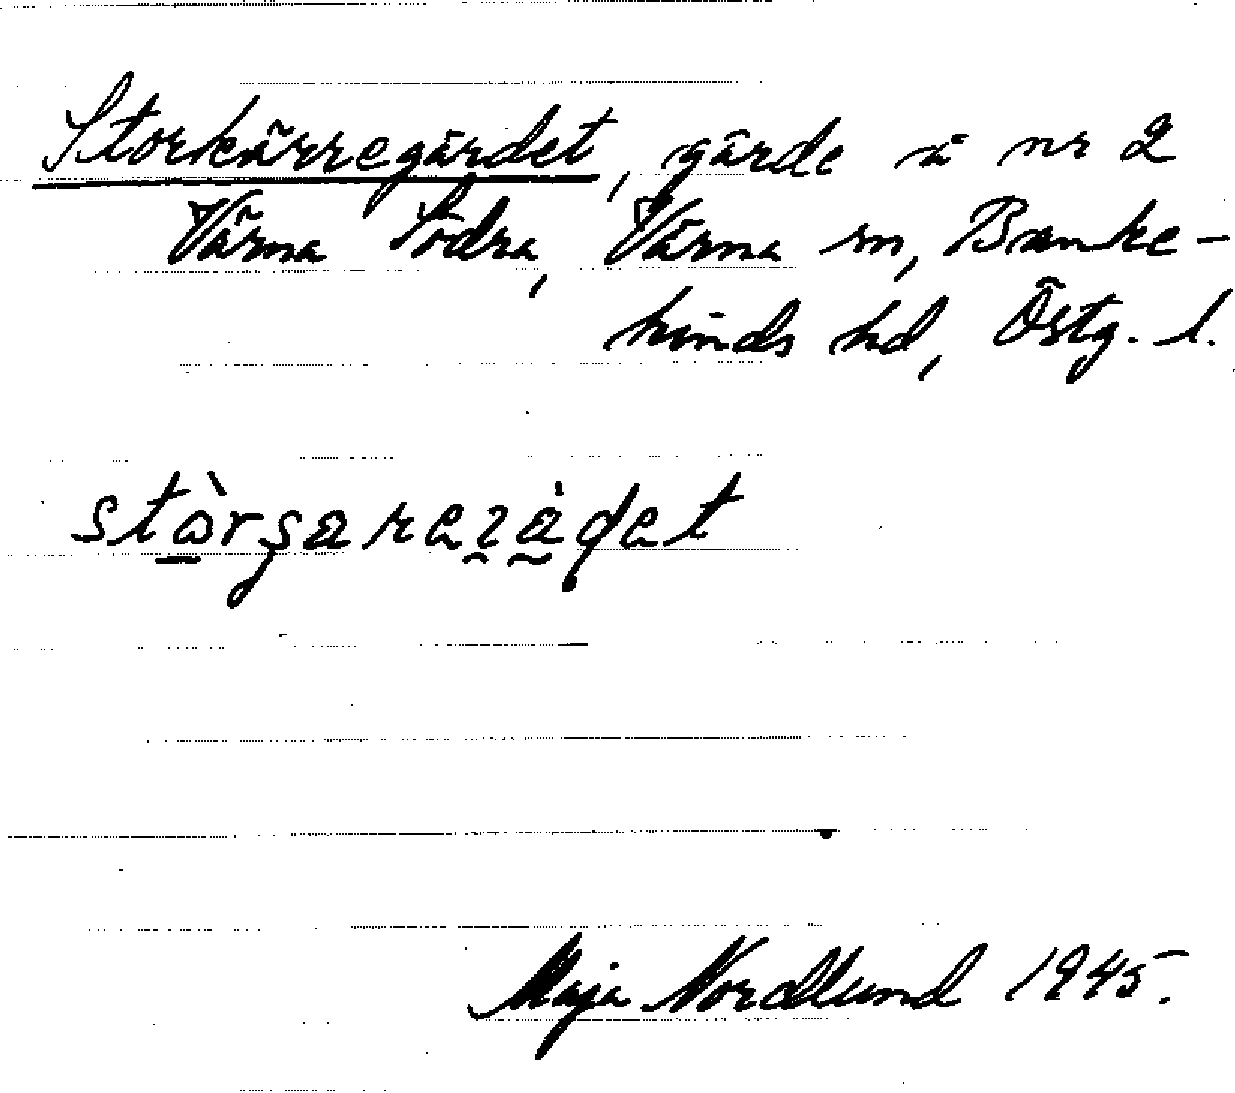 Storkärregärdet, gärde i nr 2
Värna Södra, Värna sn, Banke-
kinds hd, Östg. l.
Maja Nordlund 1945.